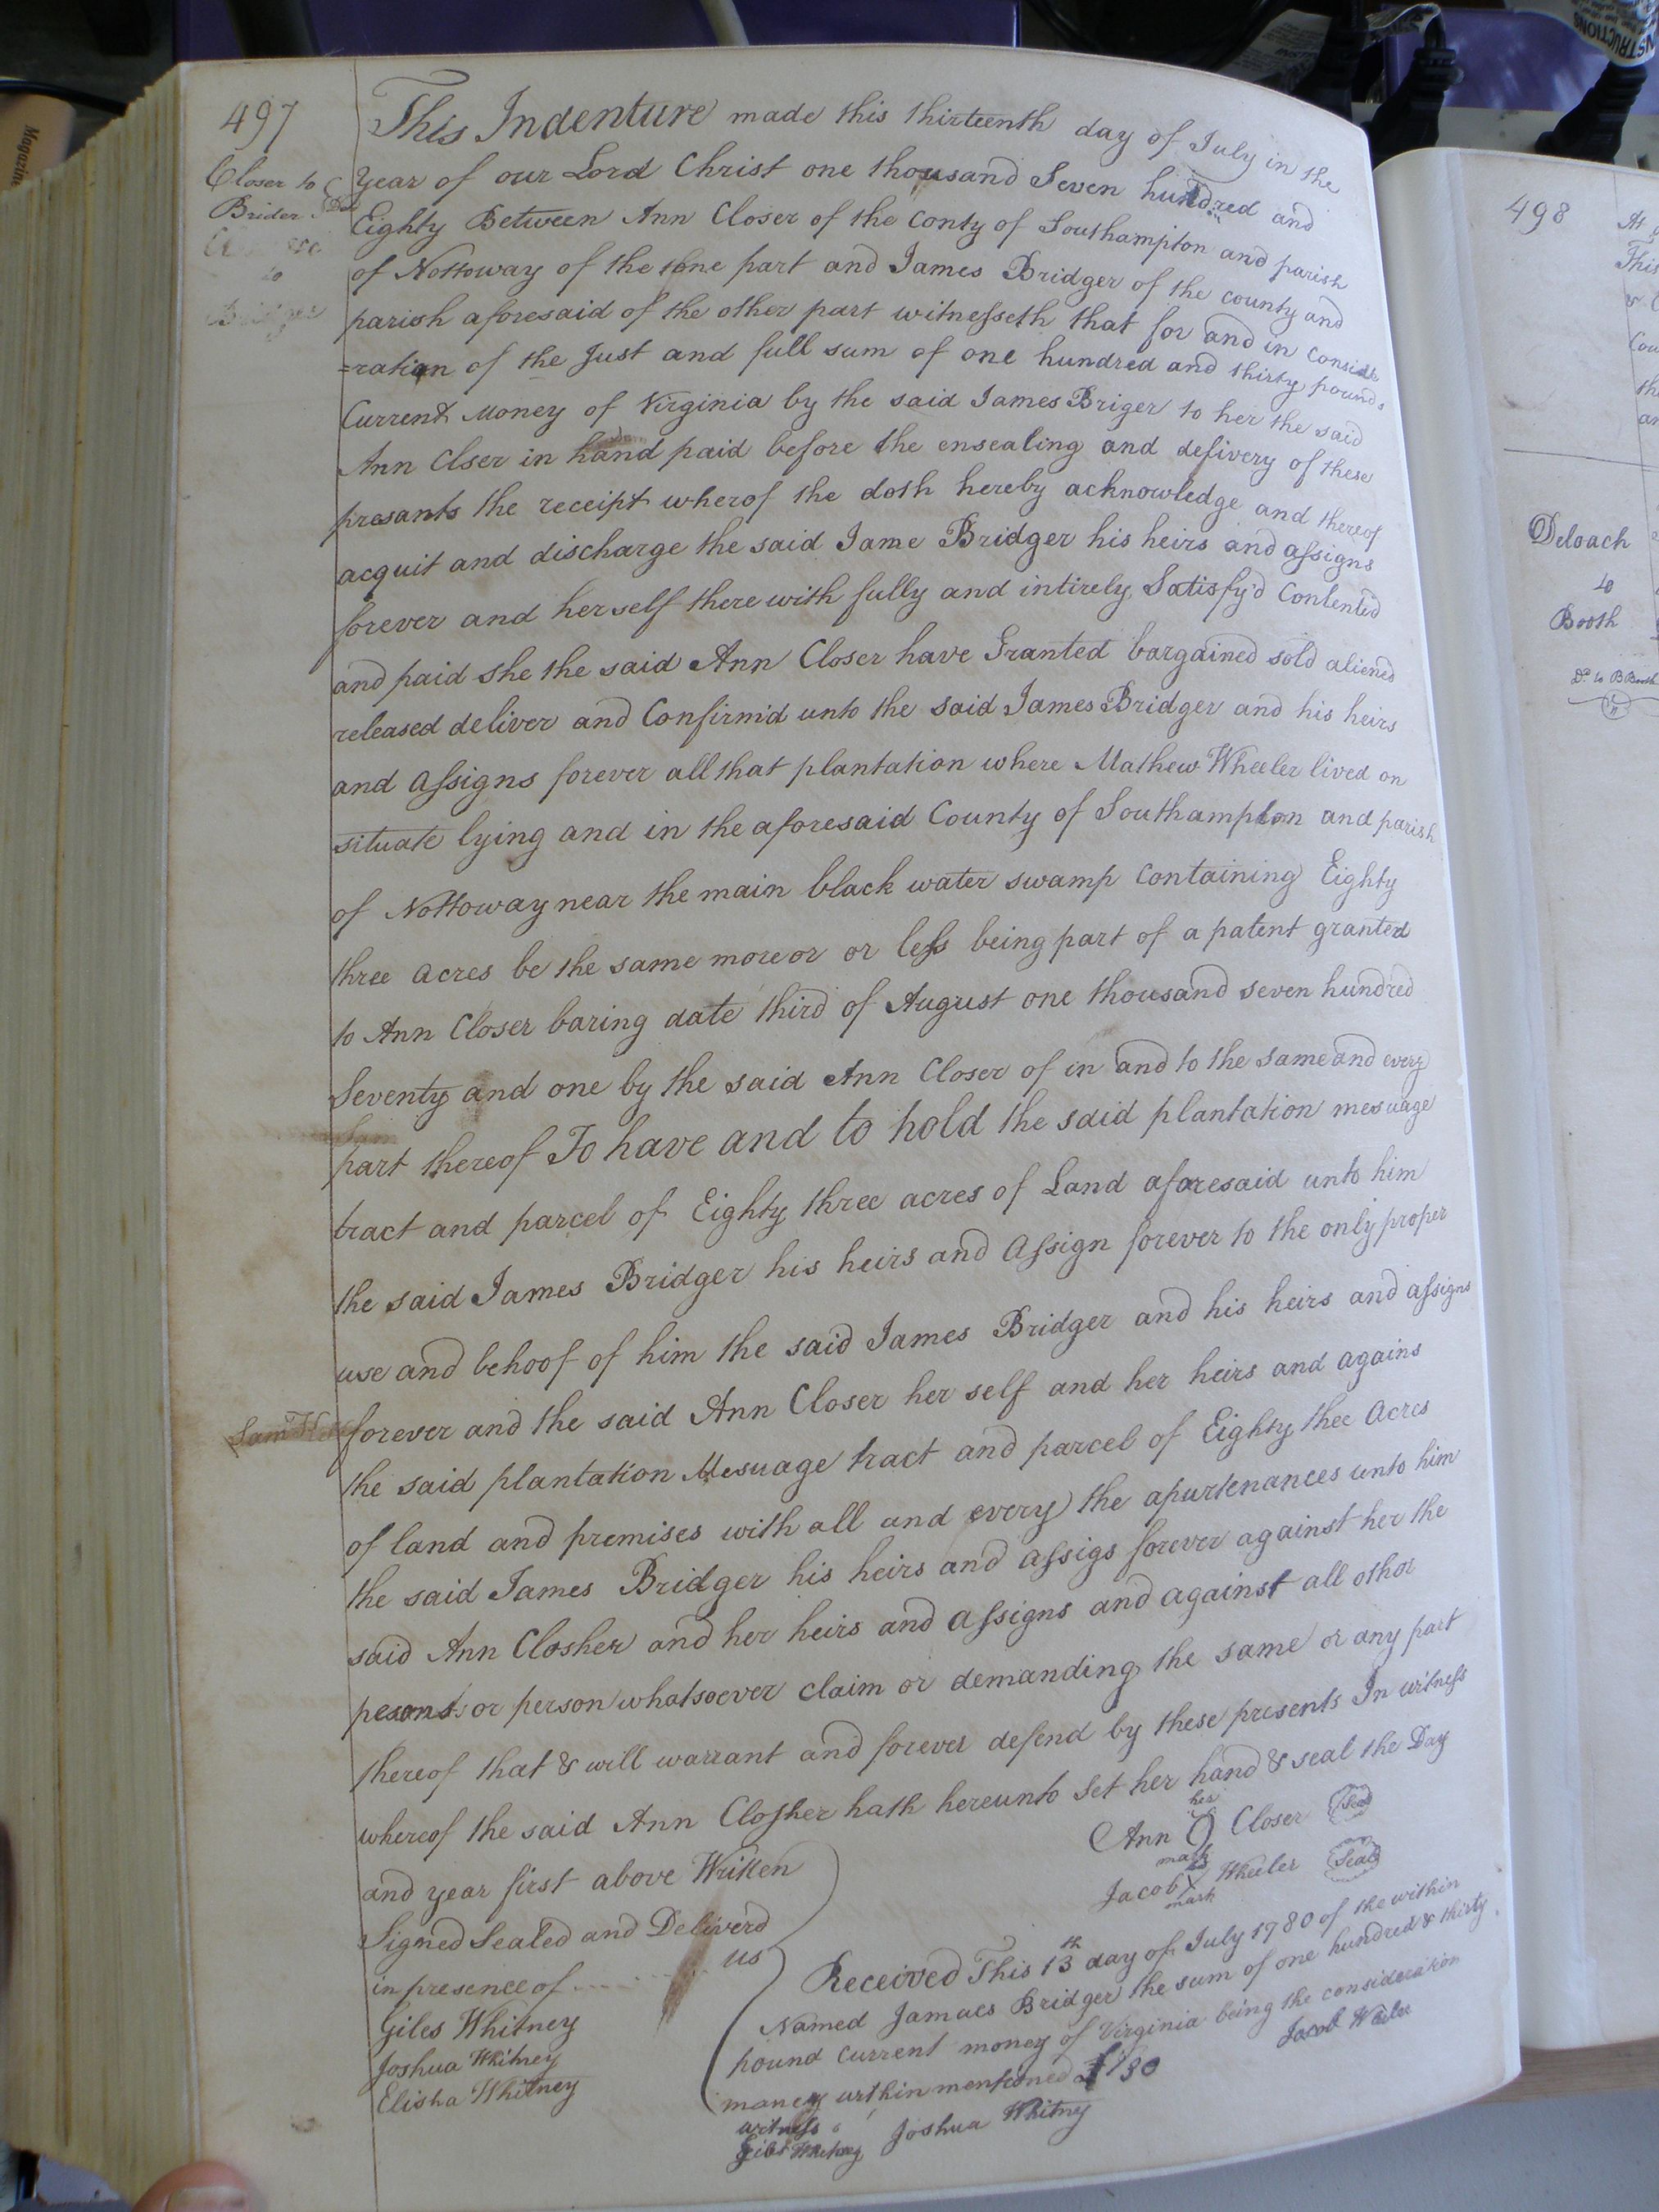 497
Closer to
Brider Deed
to
Bridger
This Indenture made this thirteenth day of July in the
Year of our Lord Christ one thousand Seven hundred and
Eighty Between Ann Closer of the Conty of Southampton and parish
of Nottoway of the tone part and James Bridger of the county and
parish aforesaid of the other part witnesseth that for and in Conside
=ration of the Just and full sum of one hundred and thirty pounds
Current Money of Virginia by the said James Briger to her the said
Ann Clser in hand paid before the ensealing and delivery of these
presants the receipt wherof the doth hereby acknowledge and thereof
acquit and discharge the said Jame Bridger his heirs and assigns
forever and herself there with fully and intirely Satisfy'd Contented
and paid she the said Ann Closer have Granted bargained sold aliened
released deliver and Confirm'd unto the said James Bridger and his heirs
and assigns forever all that plantation where Mathew Wheeler lived on
situate lying and in the aforesaid County of Southampton and parish
of Nottoway near the main black water swamp Containing Eighty
three acres be the same more or or less being part of a patent granted
to Ann Closer baring date third of August one thousand seven hundred
Seventy and one by the said Ann Closer of in and to the same and every
part thereof To have and to hold the said plantation mesuage
tract and parcel of Eighty three acres of Land aforesaid unto him
the said James Bridger his heirs and Assign forever to the only proper
use and behoof of him the said James Bridger and his heirs and assigns
Sam
forever and the said Ann Closer her self and her heirs and agains
the said plantation Mesuage tract and parcel of Eighty thee Acres
of land and premises with all and every the apurtenances unto him
the said James Bridger his heirs and assigs forever against her the
said Ann Closher and her heirs and assigns and against all other
pesons or person whatsoever claim or demanding the same or any part
thereof that & will warrant and forever defend by these presents In witness
whereof the said Ann Closher hath hereunto Set her hand & seal the Day
and year first above Written
Signed Sealed and Deliverd
in presence of us
Giles Whitney
Joshua Whitney
Elisha Whitney
her
Ann Closer Seal
mark
his
Jacob X Wheeler Seal
mark
Received This 13th day of July 1780 of the within
Named Jamaes Bridger the sum of one hundred & thirty
pound Current money of Virginia being the consideration
money within mentioned £130
Jacob Wheeler
witness
Giles Whitney Joshua Whitny
498
At
This
Cou
Deloach
to
Booth
Do. to B Booth